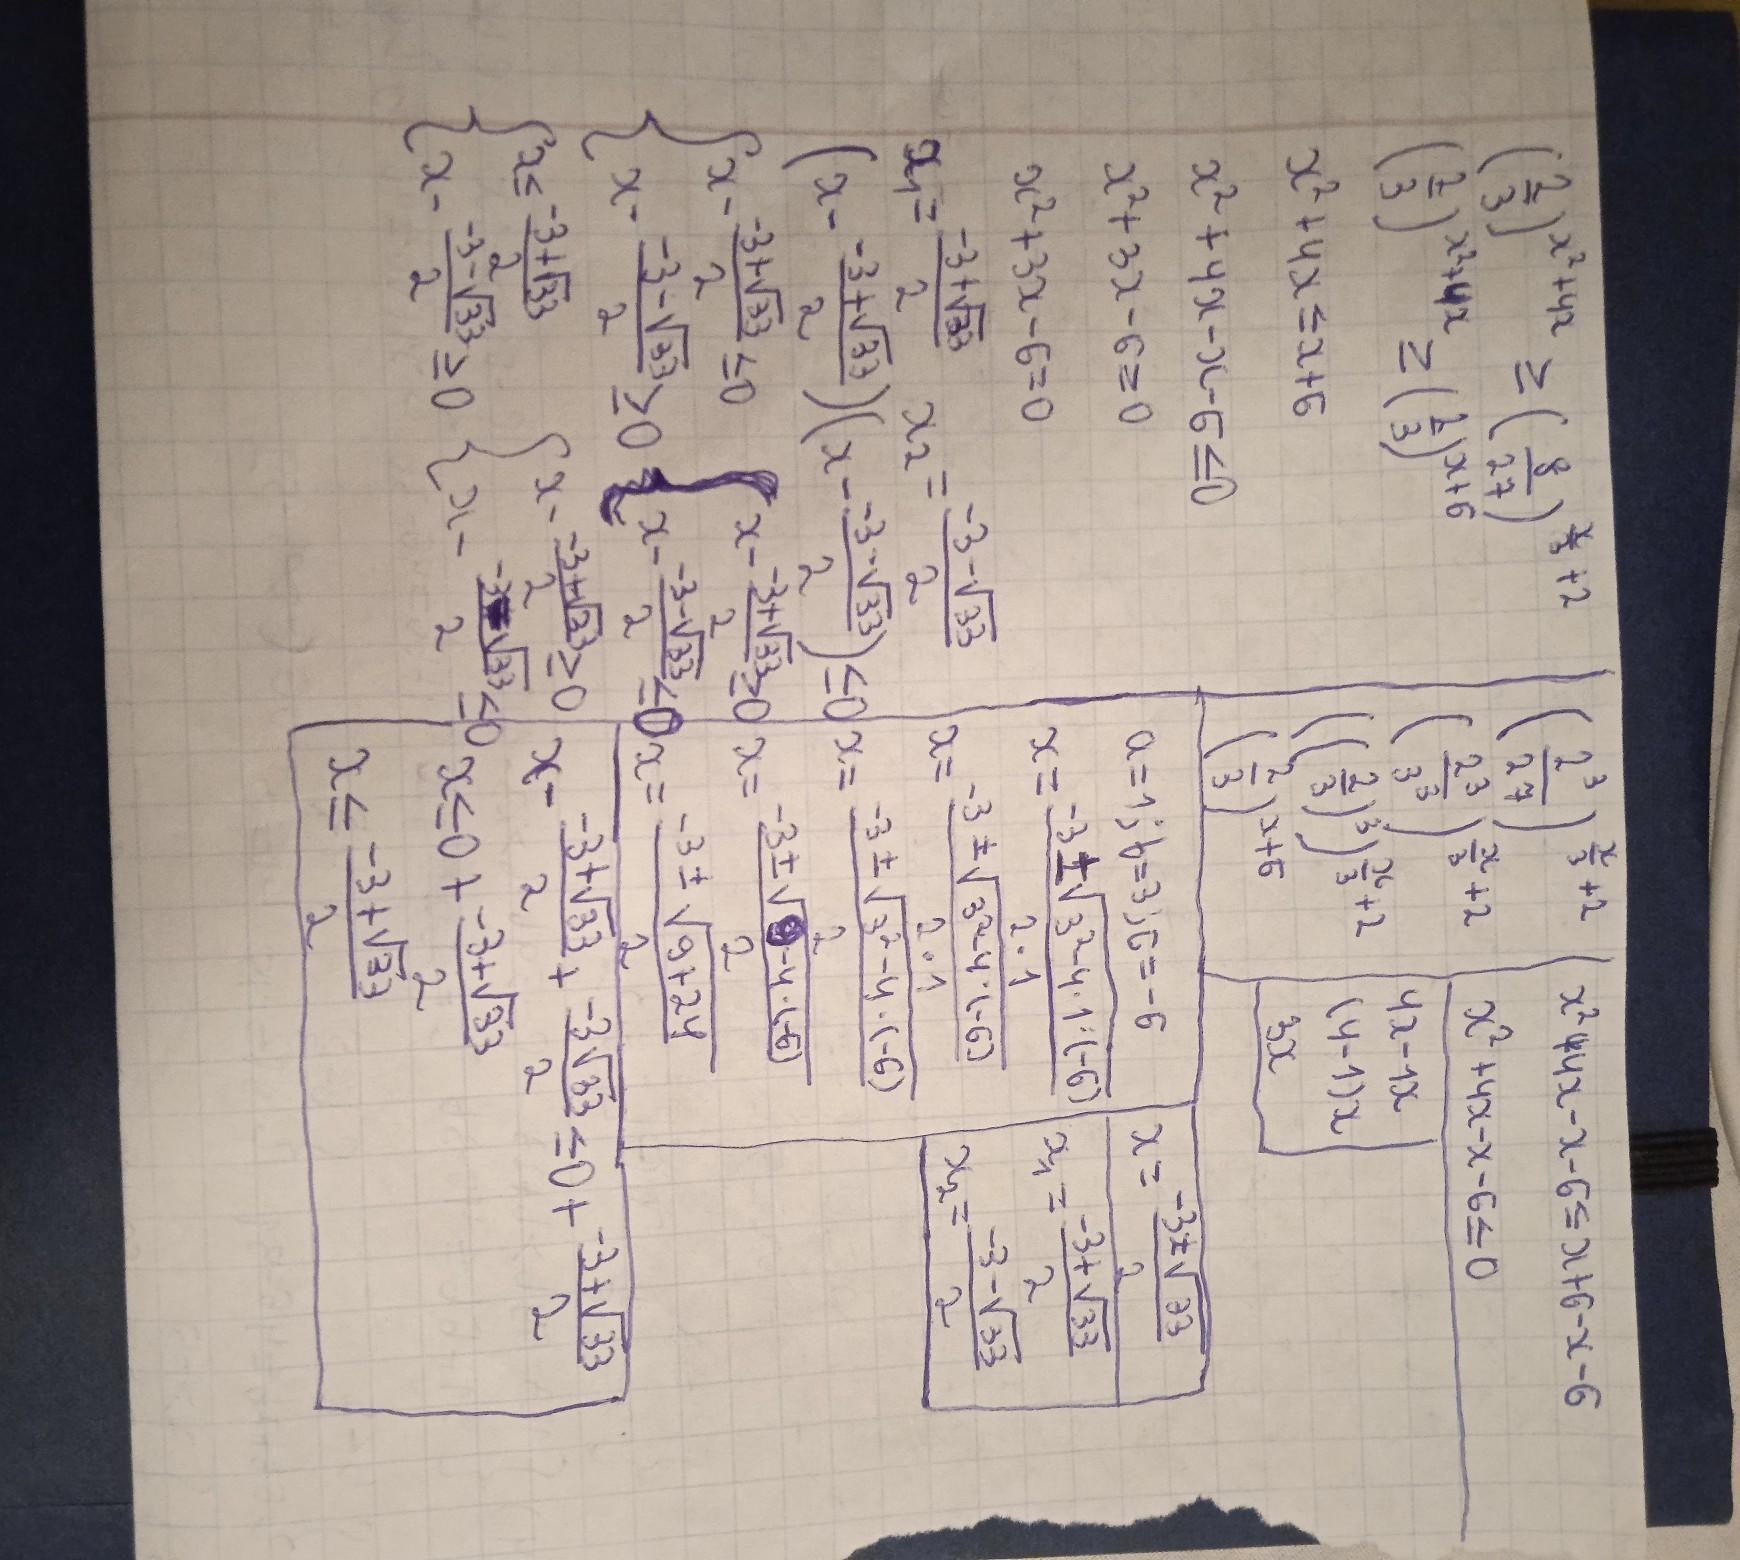 (2/3)^(x²+4x) ≥ (8/27)^(x/3+2)
(2/3)^(x²+4x) ≥ (2/3)^(x+6)
x²+4x≤x+6
x²+4x-x-6≤0
x²+3x-6≤0
x²+3x-6=0
x₁=(-3+√33)/2 x₂=(-3-√33)/2
(x-(-3+√33)/2)(x-(-3-√33)/2)≤0
{x-(-3+√33)/2≤0 {x-(-3+√33)/2≥0
x-(-3-√33)/2≥0 x-(-3-√33)/2≤0
{x≤(-3+√33)/2 {x-(-3+√33)/2≥0
x-(-3-√33)/2≥0 x-(-3-√33)/2≤0
(2³/27)^(x/3+2)
(2³/3³)^(x/3+2)
((2/3)³)^(x/3+2)
(2/3)^(x+6)
x²+4x-x-6≤x+6-x-6
x²+4x-x-6≤0
4x-1x
(4-1)x
3x
a=1; b=3; c=-6
x=(-3±√(3²-4·1·(-6)))/(2·1)
x=(-3±√(3²-4·(-6)))/(2·1)
x=(-3±√(3²-4·(-6)))/2
x=(-3±√(9-4·(-6)))/2
x=(-3±√(9+24))/2
x=(-3±√33)/2
x₁=(-3+√33)/2
x₂=(-3-√33)/2
x-(-3+√33)/2+(-3√33)/2≤0+(-3+√33)/2
x≤0+(-3+√33)/2
x≤(-3+√33)/2